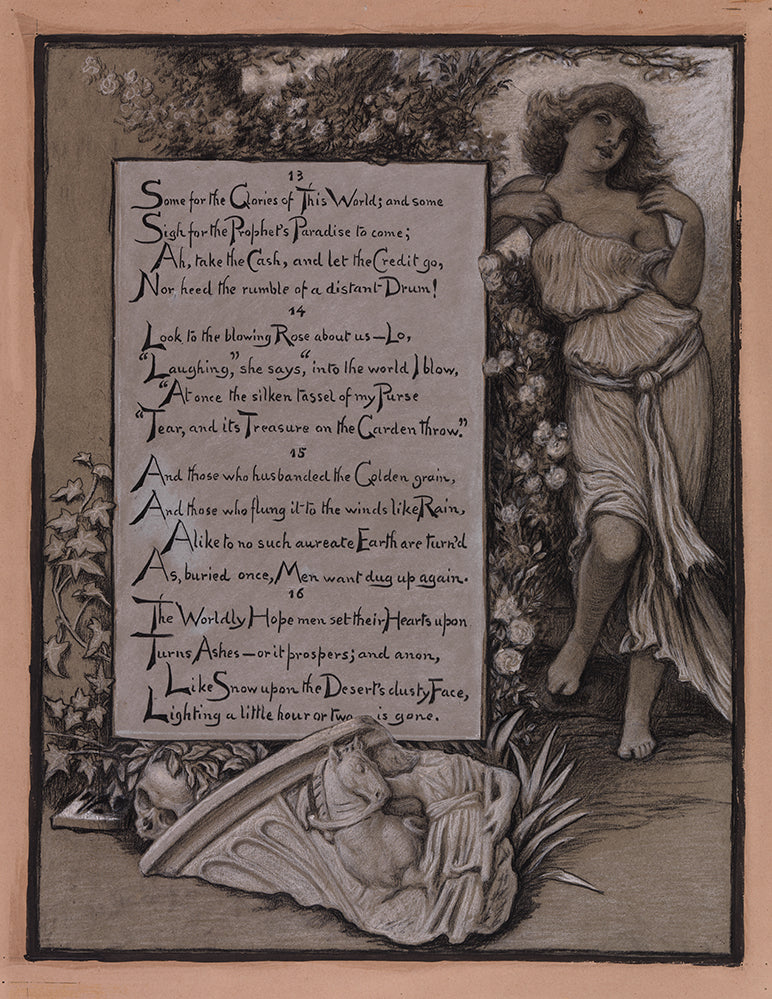 13
Some for the Glories of This World; and some
Sigh for the Prophet's Paradise to come;
Ah, take the Cash, and let the Credit go,
Nor heed the rumble of a distant Drum!
14
Look to the blowing Rose about us—Lo,
"Laughing," she says, "into the world I blow,
"At once the silken tassel of my Purse
"Tear, and its Treasure on the Garden throw."
15
And those who husbanded the Golden grain,
And those who flung it to the winds like Rain,
Alike to no such aureate Earth are turn'd
As, buried once, Men want dug up again.
16
The Worldly Hope men set their Hearts upon
Turns Ashes—or it prospers; and anon,
Like Snow upon the Desert's dusty Face,
Lighting a little hour or two is gone.